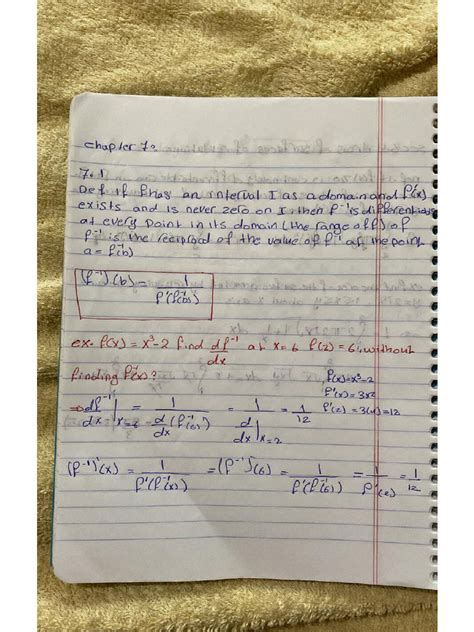 chapter 7:
7.1
Def if f has an interval I as a domain and f'(x)
exists and is never zero on I, then f⁻¹ is differentiable
at every point in its domain (the range of f) of
f⁻¹ is the reciprocal of the value of f⁻¹ at the point
a = f⁻¹(b)
(f⁻¹)'(b) = 1 / f'(f⁻¹(b))
ex. f(x) = x³-2 find df⁻¹/dx at x=6 f(2)=6, without
finding f⁻¹(x)?
f(x)=x³-2
f'(x)=3x²
f'(2)=3(4)=12
⇒ df⁻¹/dx |x=6 = 1 / d/dx (f⁻¹(6)) = 1 / d/dx |x=2 = 1/12
(f⁻¹)'(x) = 1 / f'(f⁻¹(x)) = (f⁻¹)'(6) = 1 / f'(f⁻¹(6)) = 1 / f'(2) = 1/12